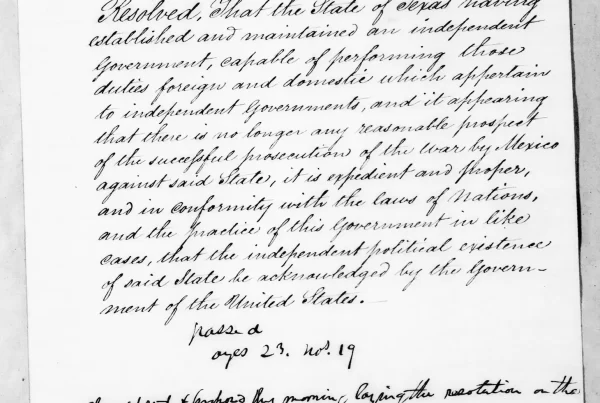 Resolved, That the State of Texas having
established and maintained an independent
Government, capable of performing those
duties foreign and domestic which appertain
to independent Governments, and it appearing
that there is no longer any reasonable prospect
of the successful prosecution of the war by Mexico
against said State, it is expedient and proper,
and in conformity with the laws of Nations,
and the practice of this Government in like
cases, that the independent political existence
of said State be acknowledged by the Govern-
ment of the United States.
passed
ayes 23. nos. 19
this morning, laying the resolution on the